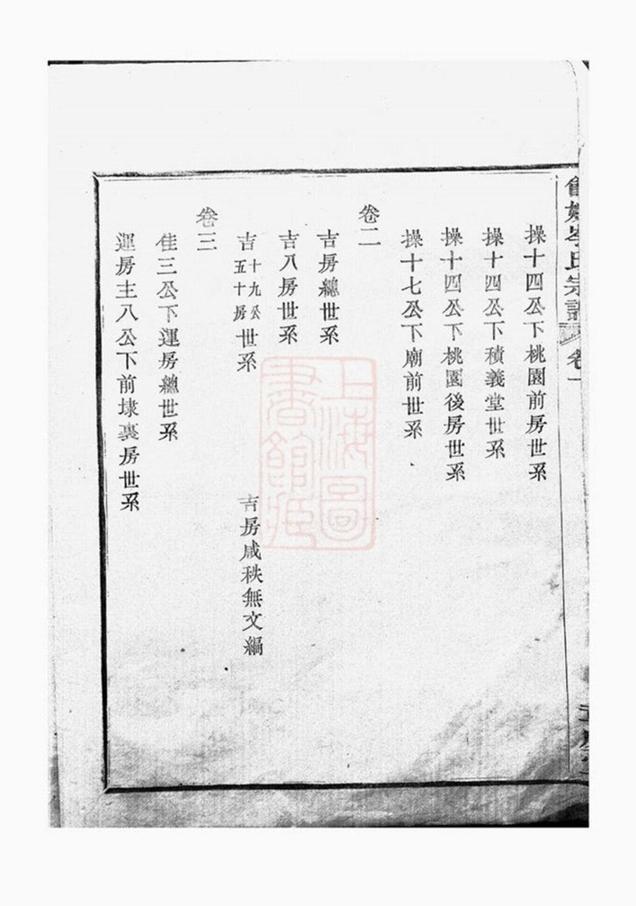 岑氏宗譜
卷一
操十四公下桃園前房世系
操十四公下積義堂世系
操十四公下桃園後房世系
操十七公下廟前世系
卷二
吉房總世系
吉八房世系
吉十九公五十房世系 吉房咸秩無文編
卷三
佳三公下運房總世系
運房主八公下前埭裏房世系
上海圖書館藏